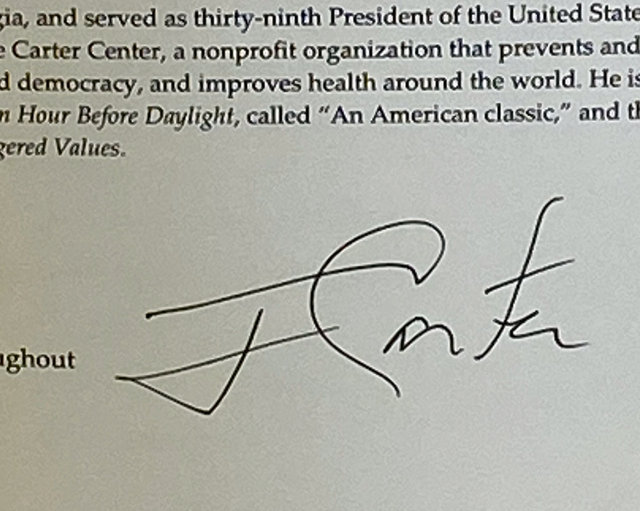 gia, and served as thirty-ninth President of the United State
e Carter Center, a nonprofit organization that prevents and
d democracy, and improves health around the world. He is
n Hour Before Daylight, called “An American classic,” and th
gered Values.
J Carter
ughout